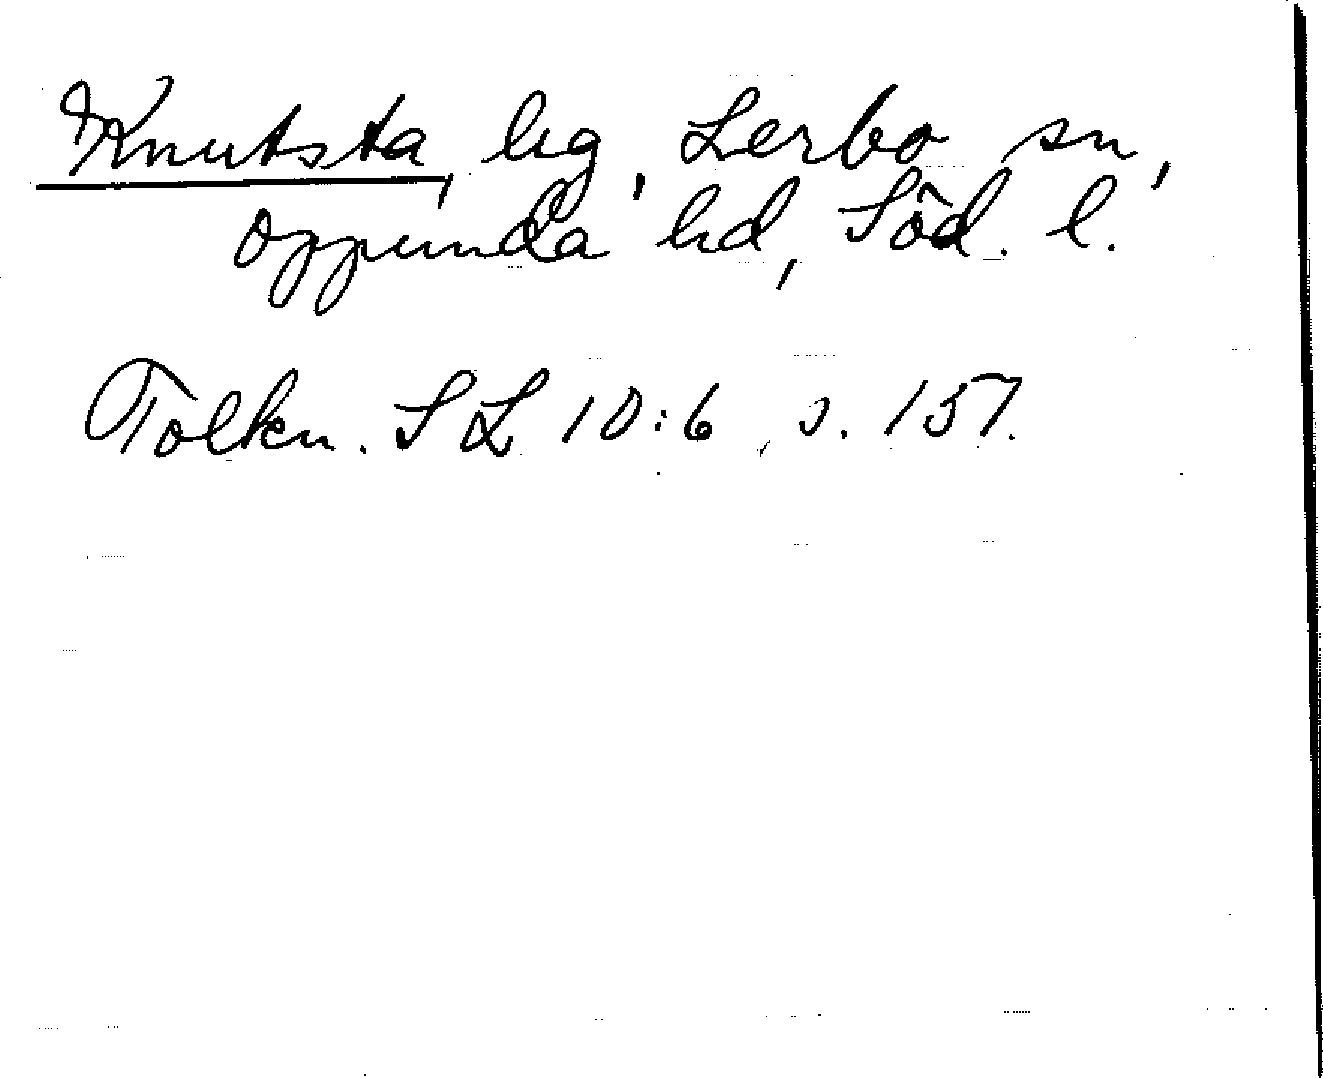 Knutsta, hg, Lerbo sn,
Oppunda hd, Söd. l.
Tolkn. SL 10:6, s. 157.